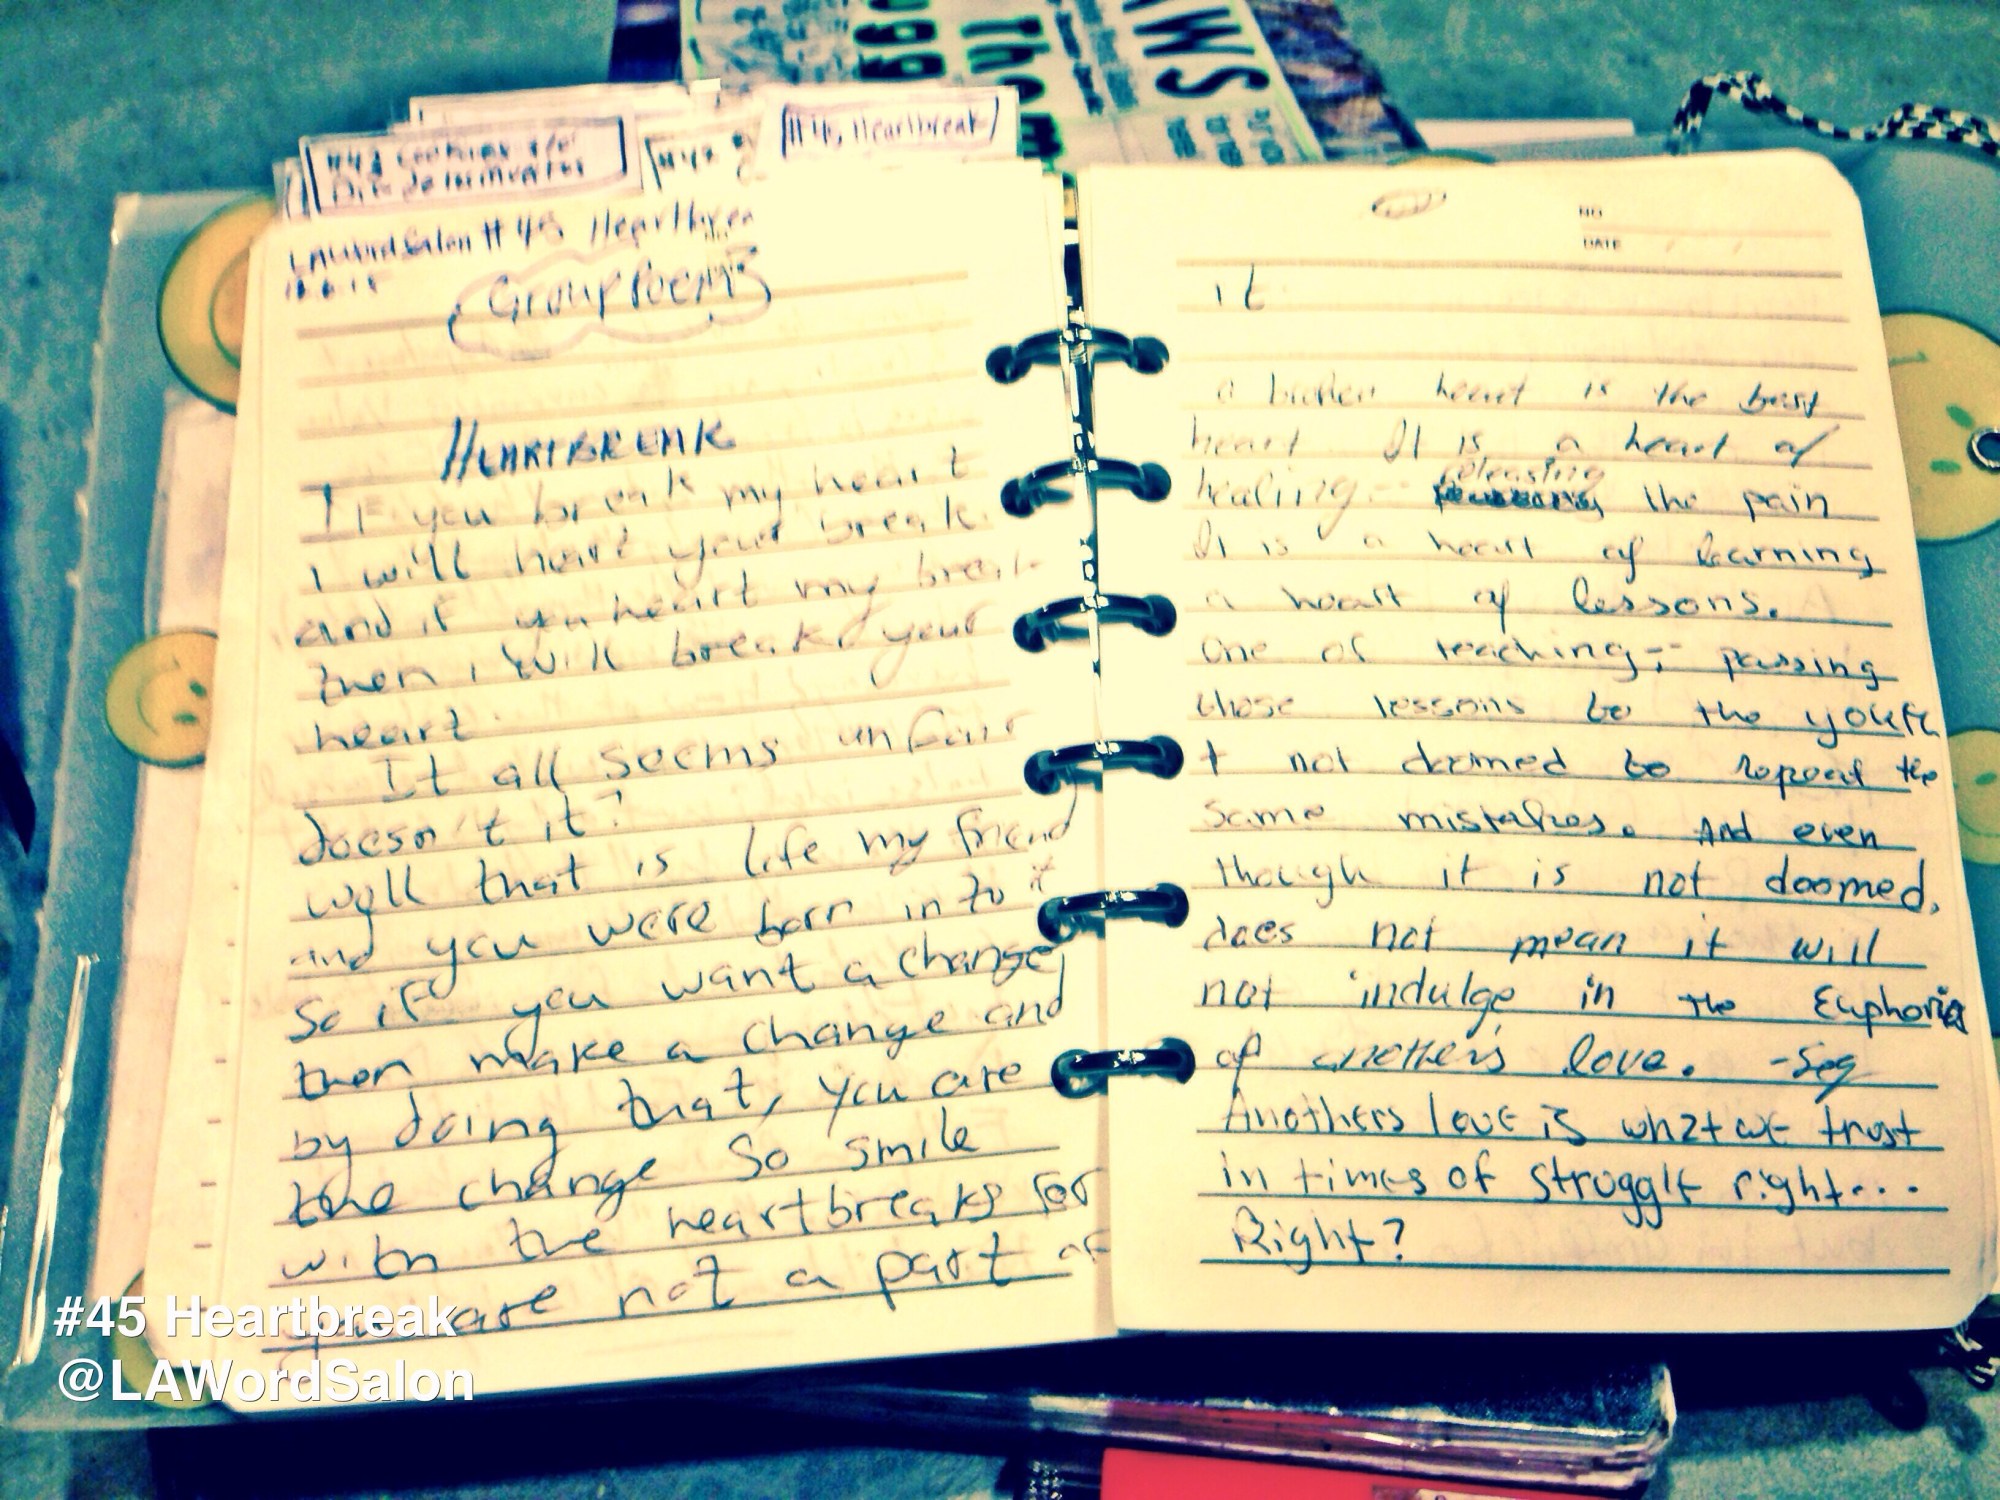 AWS
The
#43 Cookies
#45 Heartbreak
LAWordSalon #45 Heartbrea
Group Poem
HEARTBREAK
If you break my heart
I will heart your break.
and if you heart my break
then i will break your
heart.
It all seems unfair
doesn't it?
well that is life my friend
and you were born into it
So if you want a change
then make a change and
by doing that, you are
the change So smile
with the heartbreaks for
you are not a part of
NO
DATE
it
a broken heart is the best
heart. It is a heart of
healing-- releasing the pain
It is a heart of learning
a heart of lessons.
One of teaching-- passing
those lessons to the youth
+ not doomed to repeat the
same mistakes. And even
though it is not doomed,
does not mean it will
not indulge in the Euphoria
of another's love. -Seg
Anothers love is what we trust
in times of struggle right...
Right?
#45 Heartbreak
@LAWordSalon